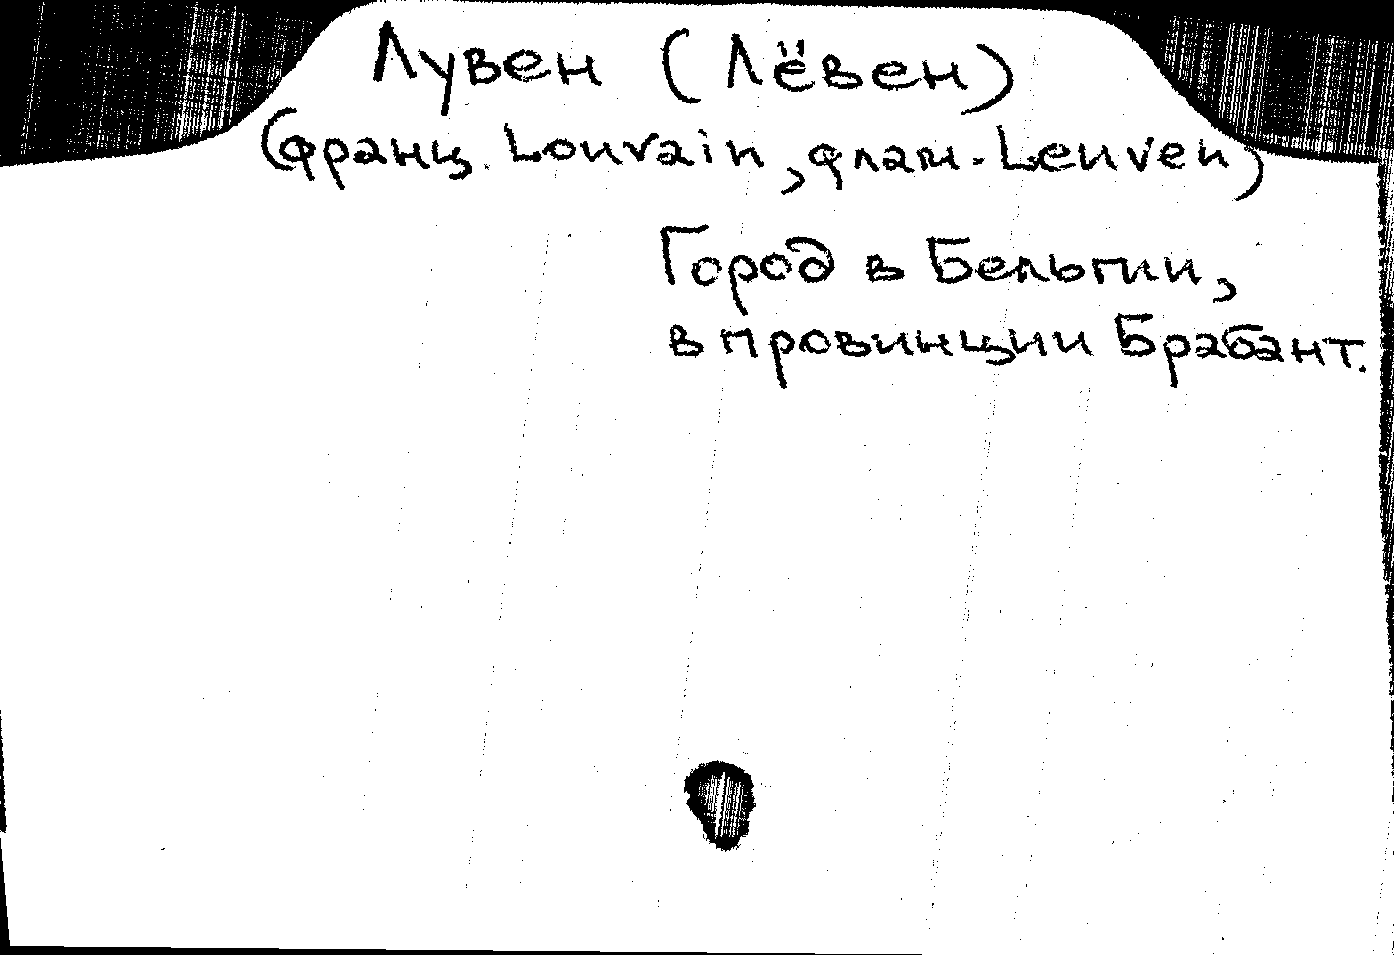 Лувен (Лёвен)
(франц. Louvain, флам. Leuven)
Город в Бельгии,
в провинции Брабант.